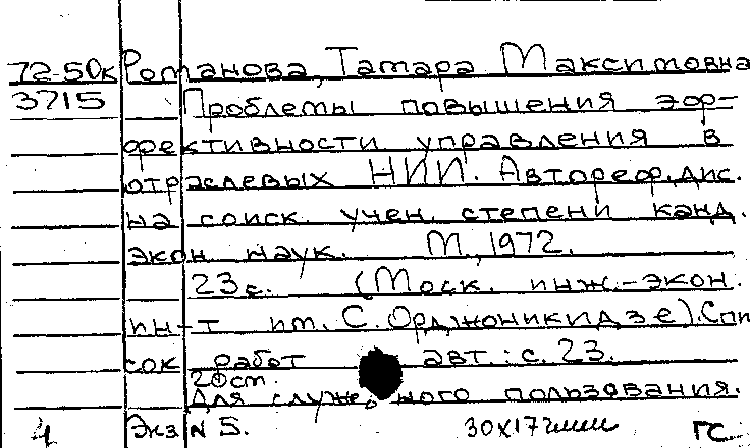 72-50к Романова, Тамара Максимовна
3715 Проблемы повышения эф-
фективности управления в
отраслевых НИИ. Автореф. дис.
на соиск. учен. степени канд.
экон наук. М., 1972.
23с. (Моск. инж.-экон.
ин-т им. С. Орджоникидзе). Спи
сок работ авт: с. 23.
20ст.
Для служебного пользования.
4 Экз N 5. 30х17 ГС